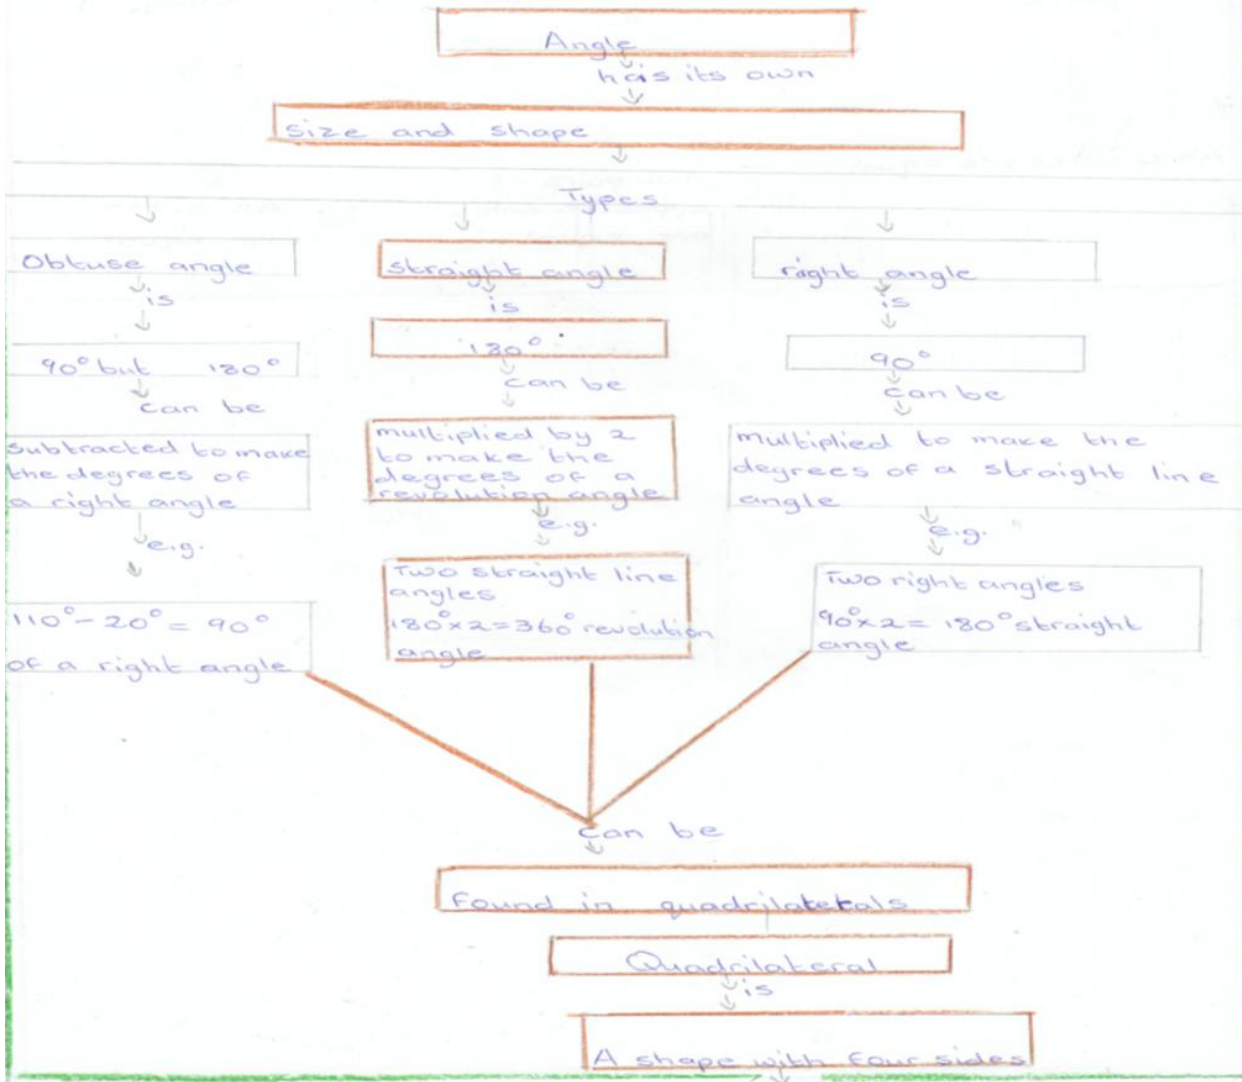 Angle
has its own
size and shape
Types
Obtuse angle
is
90° but 180°
can be
subtracted to make
the degrees of
a right angle
e.g.
110° - 20° = 90°
of a right angle
straight angle
is
180°
can be
multiplied by 2
to make the
degrees of a
revolution angle
e.g.
Two straight line
angles
180° x 2 = 360° revolution
angle
right angle
is
90°
can be
multiplied to make the
degrees of a straight line
angle
e.g.
Two right angles
90° x 2 = 180° straight
angle
can be
Found in quadrilaterals
Quadrilateral
is
A shape with four sides